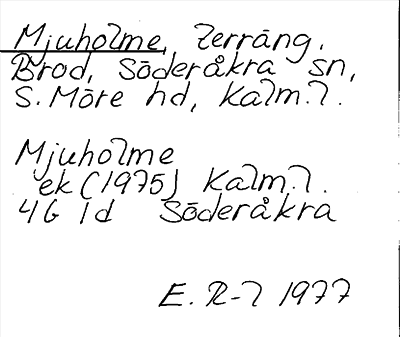 Mjuholme, Terräng.
Brod, Söderåkra sn,
S. Möre hd, Kalm.l.
Mjuholme
ek (1975) Kalm.l.
4G 1d Söderåkra
E. R-l 1977